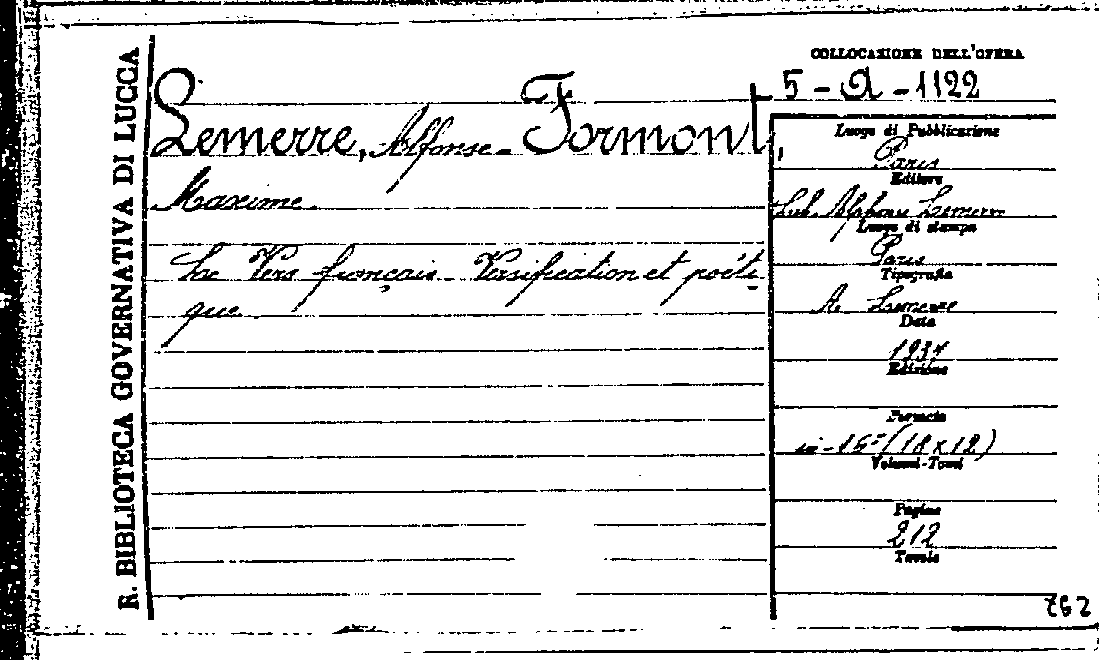 R. BIBLIOTECA GOVERNATIVA DI LUCCA
COLLOCAZIONE DELL'OPERA
5 - A - 1122
Lemerre, Alfonse - Formont,
Maxime.
Le Vers français - Versification et poéti-
que.
Luogo di Pubblicazione
Paris
Editore
Lib. Alphonse Lemerre
Luogo di stampa
Paris
Tipografia
A. Lemerre
Data
1937
Edizione
Formato
in-16° (18 x 12)
Volumi-Tomi
Pagine
212
Tavole